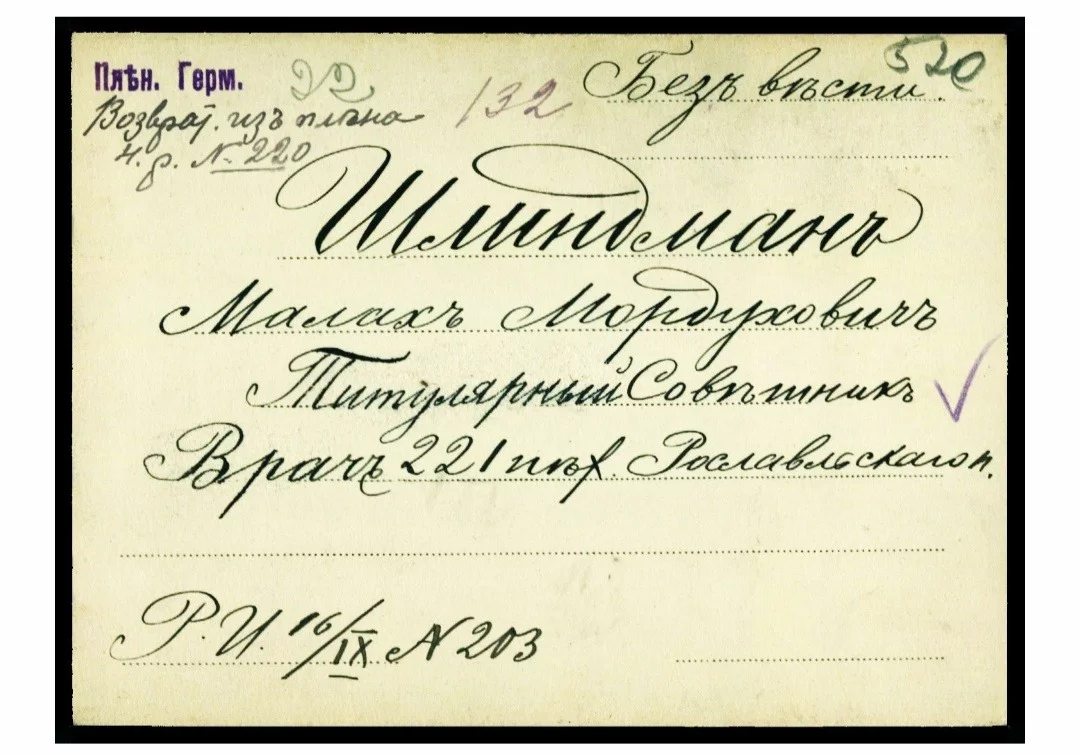 Плѣн. Герм.
92
132
Безъ вѣсти.
520
Возврат. изъ плѣна
ч. р. № 220
Шлиндманъ
Малахъ Мордуховичъ
Титулярный Совѣтникъ
Врачъ 221 пѣх. Рославльскаго п.
Р. И. 16/IX № 203